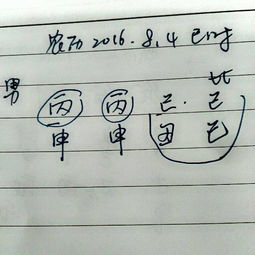 农历 2016.8.4 巳时
比
男
丙 丙 己. 己
申 申 丑 巳